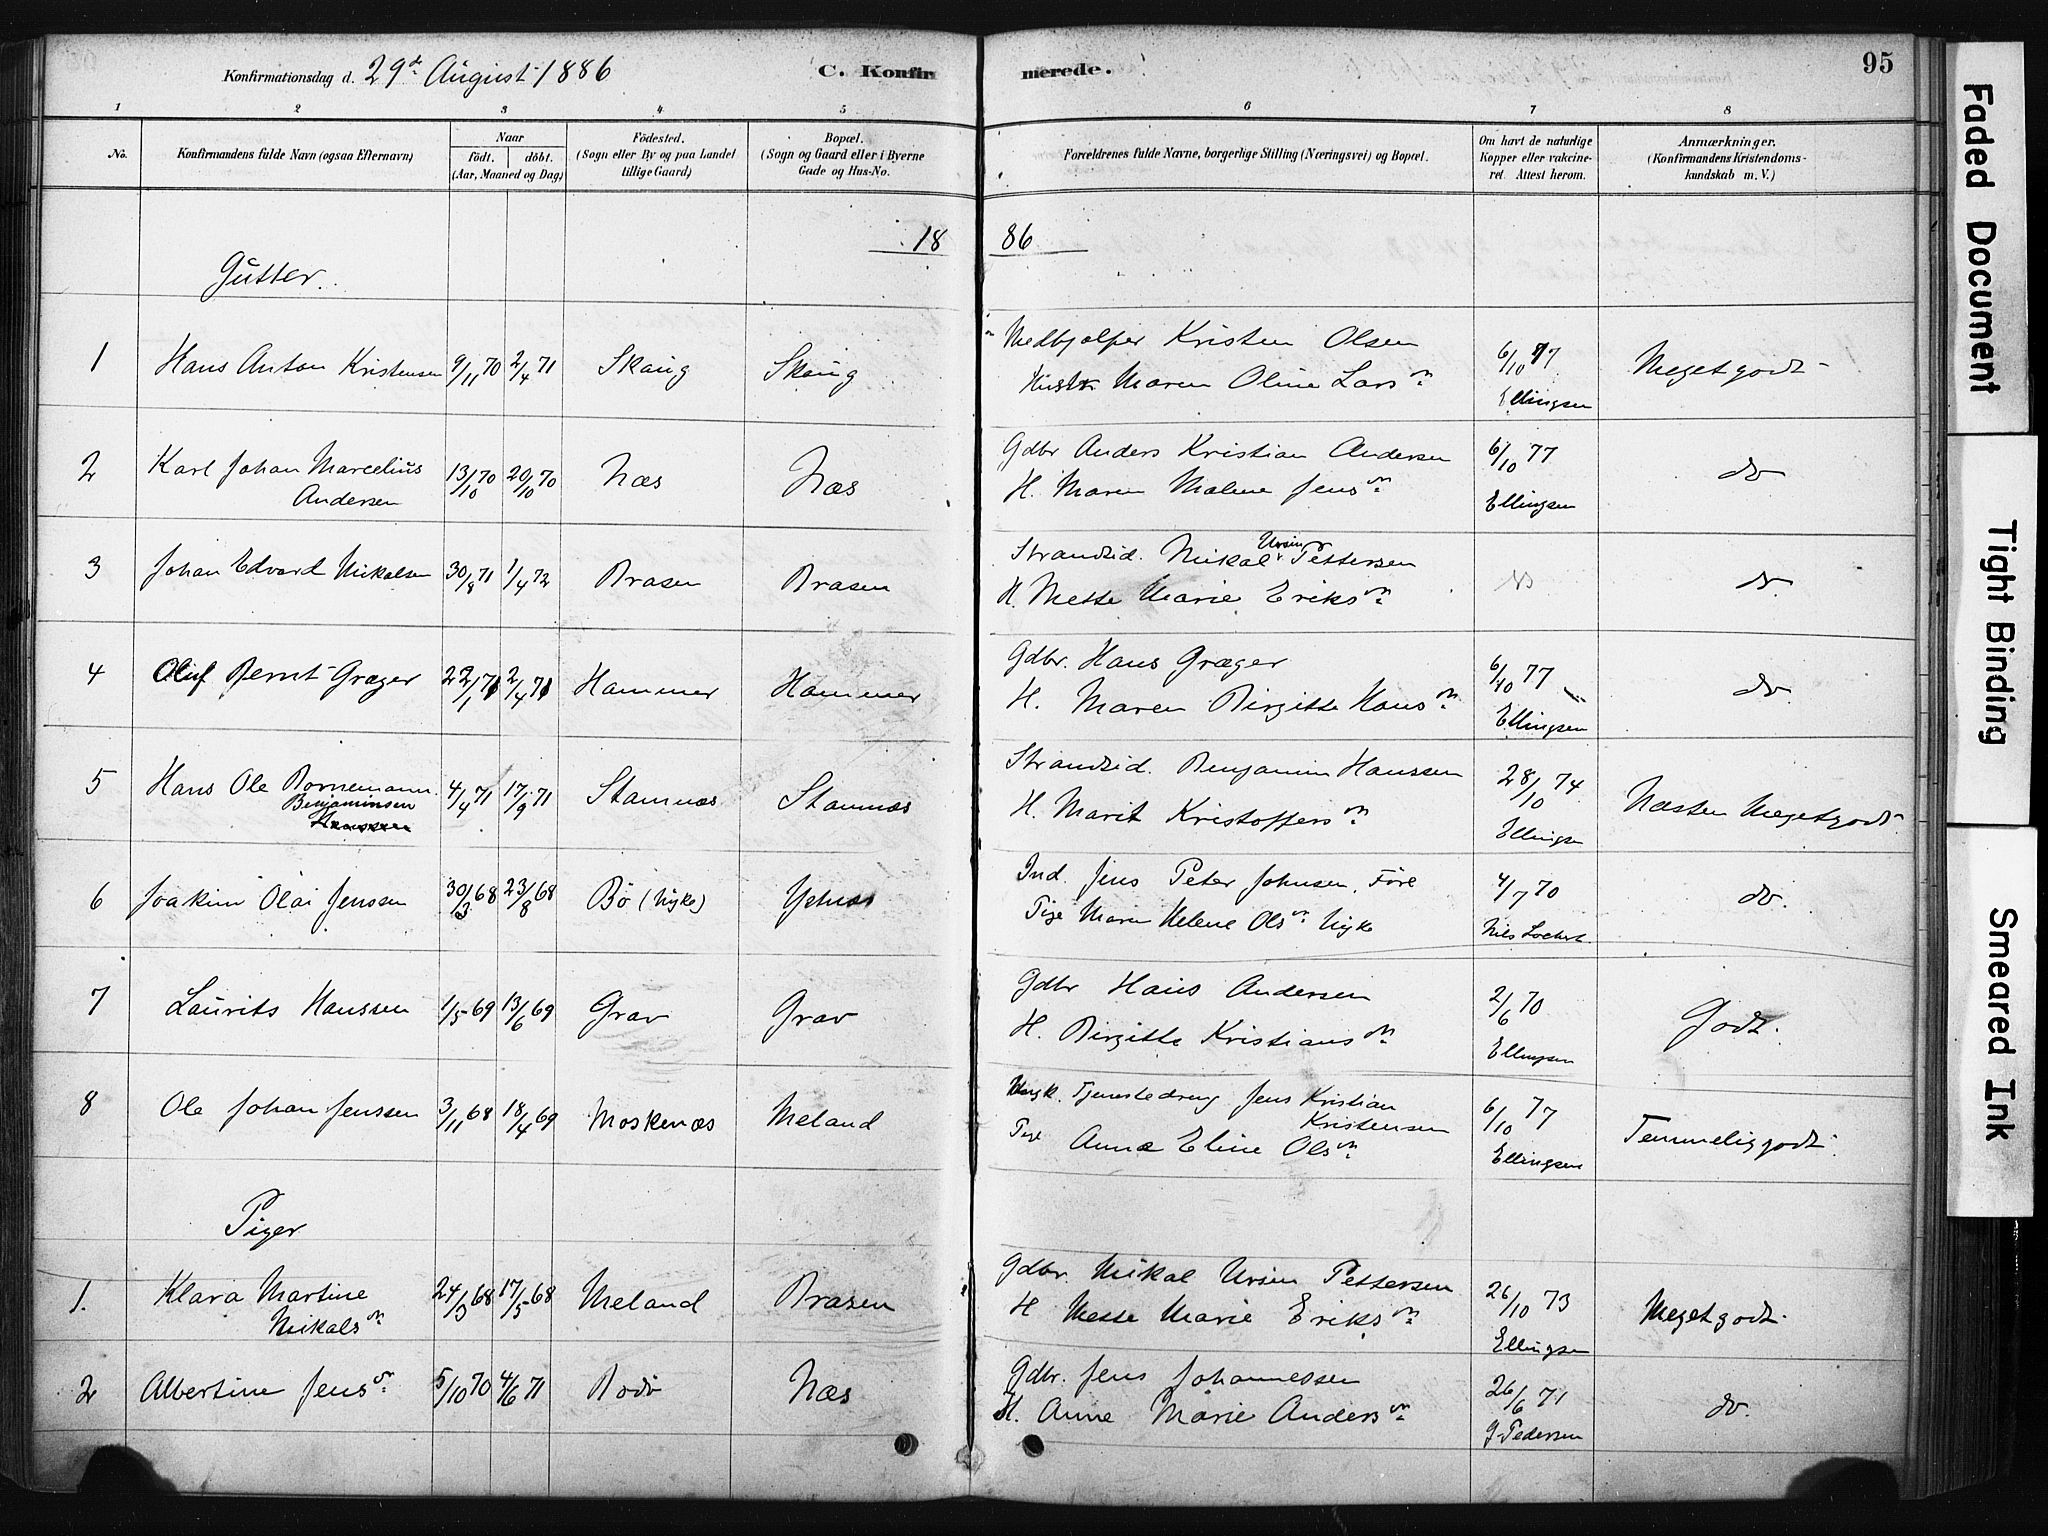 95
Konfirmationsdag d. 29de August 1886
C. Konfirmerede.
1 2 3 4 5 6 7 8
No.
Konfirmandens fulde Navn (ogsaa Efternavn)
Naar
födt. döbt.
(Aar, Maaned og Dag)
Födested.
(Sogn eller By og paa Landet
tillige Gaard)
Bopæl.
(Sogn og Gaard eller i Byerne
Gade og Hus-No.
Forældrenes fulde Navne, borgerlige Stilling (Næringsvei) og Bopæl.
Om havt de naturlige
Kopper eller vakcine-
ret. Attest herom.
Anmærkninger.
(Konfirmandens Kristendoms-
kundskab m. V.)
1886
Gutter.
1 Hans Anton Kristensen 9/11 70 2/4 71 Skaug Skaug
Medhjelper Kristen Olsen
Hustr. Maren Oline Larsdn
6/10 77
Ellingsen
Meget godt
2 Karl Johan Marcelius
Andersen
13/10 70 20/10 70 Næs Næs
Gdbr Anders Kristian Andersen
H. Maren Malene Jensdn
6/10 77
Ellingsen
do
3 Johan Edvard Mikalsen 30/8 71 1/4 72 Brasen Brasen
Strandsid. Mikal Ursin Pettersen
H. Mette Marie Eriksdn
do.
4 Oluf Bernt Græger 22/1 71 2/4 71 Hammer Hammer
Gdbr. Hans Græger
H. Maren Birgitte Hansdn
6/10 77
Ellingsen
do.
5 Hans Ole Bornemann
Benjaminsen
Hanssen
4/4 71 17/9 71 Stamnæs Stamnæs
Strandsid. Benjamin Hanssen
H. Marit Kristoffersdn
28/10 74
Ellingsen
Næsten Meget godt
6 Joakim Olai Jenssen 30/3 68 23/8 68 Bö (Nyke)
Ind. Jens Peter Johnsen, Före
Pige Maren Helene Olsdn Nyke
4/7 70
Nils Lockert
do.
7 Laurits Hanssen 1/5 69 13/6 69 Grav Grav
Gdbr Hans Andersen
H. Birgitte Kristiansdn
2/6 70
Ellingsen
Godt.
8 Ole Johan Jenssen 3/11 68 18/4 69 Moskenæs Meland
Ungk. Tjenestedreng Jens Kristian
Kristensen
Pige Anna Eline Olsdn
6/10 77
Ellingsen
Temmelig godt.
Piger
1. Klara Martine
Mikalsdn
24/3 68 17/5 68 Meland Brasen
Gdbr. Mikal Ursin Pettersen
H Mette Marie Eriksdn
26/10 73
Ellingsen
Meget godt.
2 Albertine Jensdn 5/10 70 4/6 71 Bodö Næs
Gdbr. Jens Johannessen
H. Anne Marie Andersdn
26/6 71
G. Pedersen
do.
Faded Document
Tight Binding
Smeared Ink